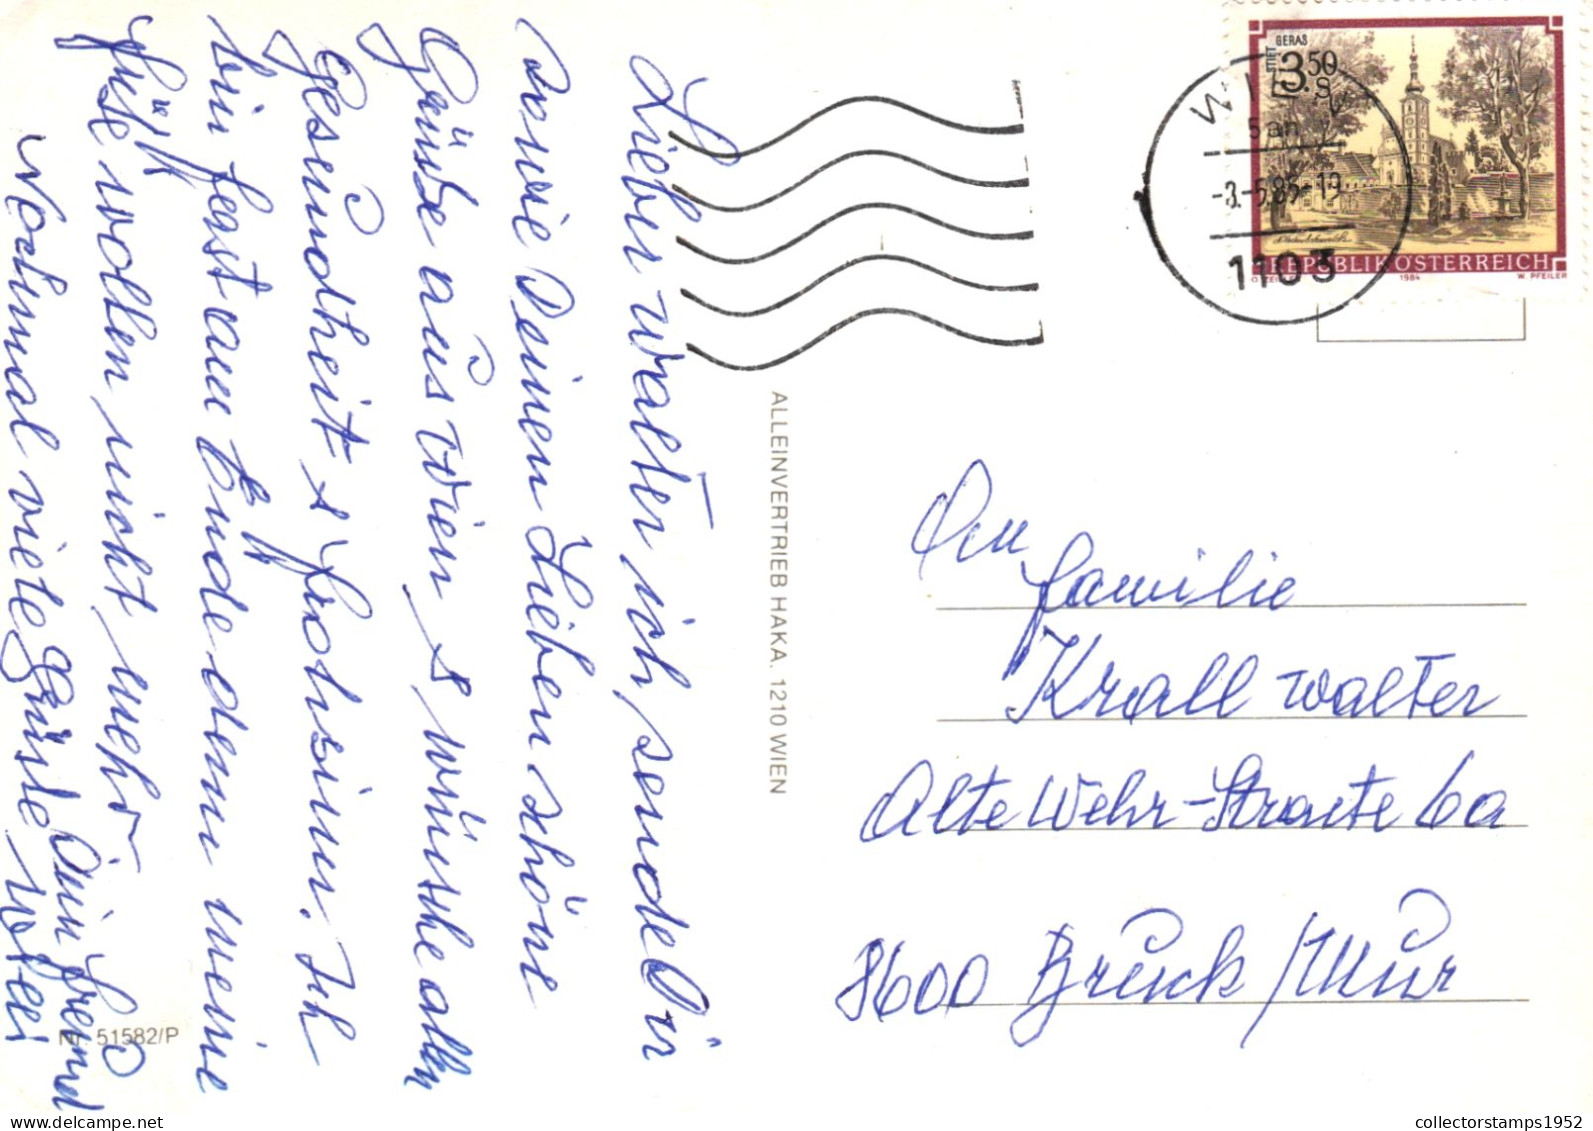 Lieber Walter ich sende Dir
sowie Deinen Lieben schöne
Grüße aus Wien & wünsche allen
Gesundheit & Frohsinn. Ich
bin fest am Ende denn meine
Füße wollen nicht mehr
Nochmal viele Grüße
Dein Freund
Nr. 51582/P
ALLEINVERTRIEB HAKA. 1210 WIEN
STIFT GERAS
3.50
S
REPUBLIK ÖSTERREICH
1984
W. PFEILER
WIEN
-3.-5.85-19
1103
An
Familie
Krall Walter
Alte Wehr-Straße 6a
8600 Bruck/Mur
collectorstamps1952